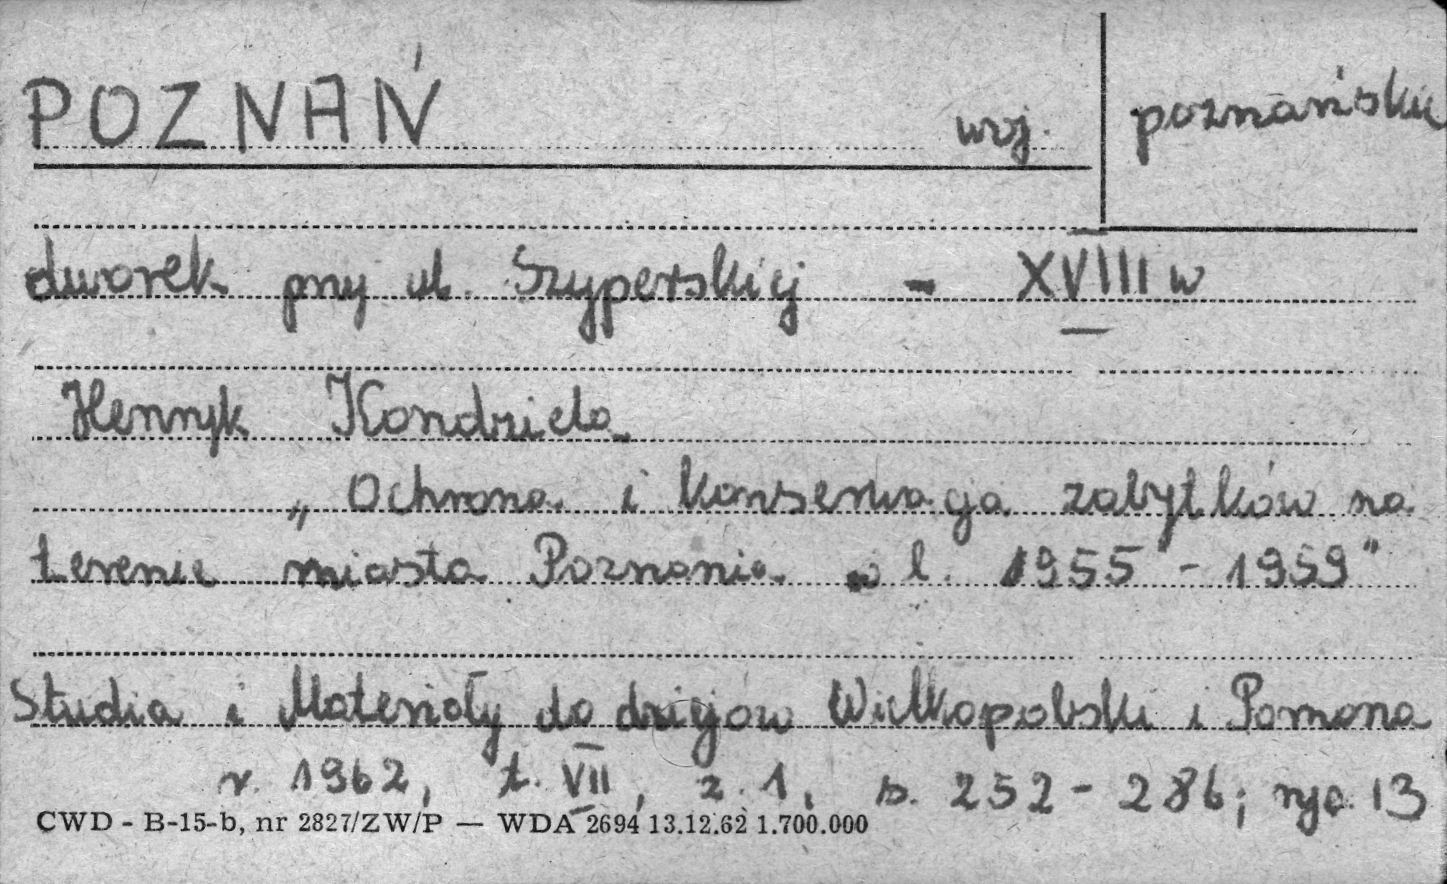 POZNAŃ woj. poznańskie
dworek przy ul. Szyperskiej - XVIII w
Henryk Kondziela
„Ochrona i konserwacja zabytków na
terenie miasta Poznania w l. 1955 - 1959"
Studia i Materiały do dziejów Wielkopolski i Pomorza
r. 1962, t. VII, z. 1, s. 252 - 286; ryc. 13
CWD - B-15-b, nr 2827/ZW/P — WDA 2694 13.12.62 1.700.000